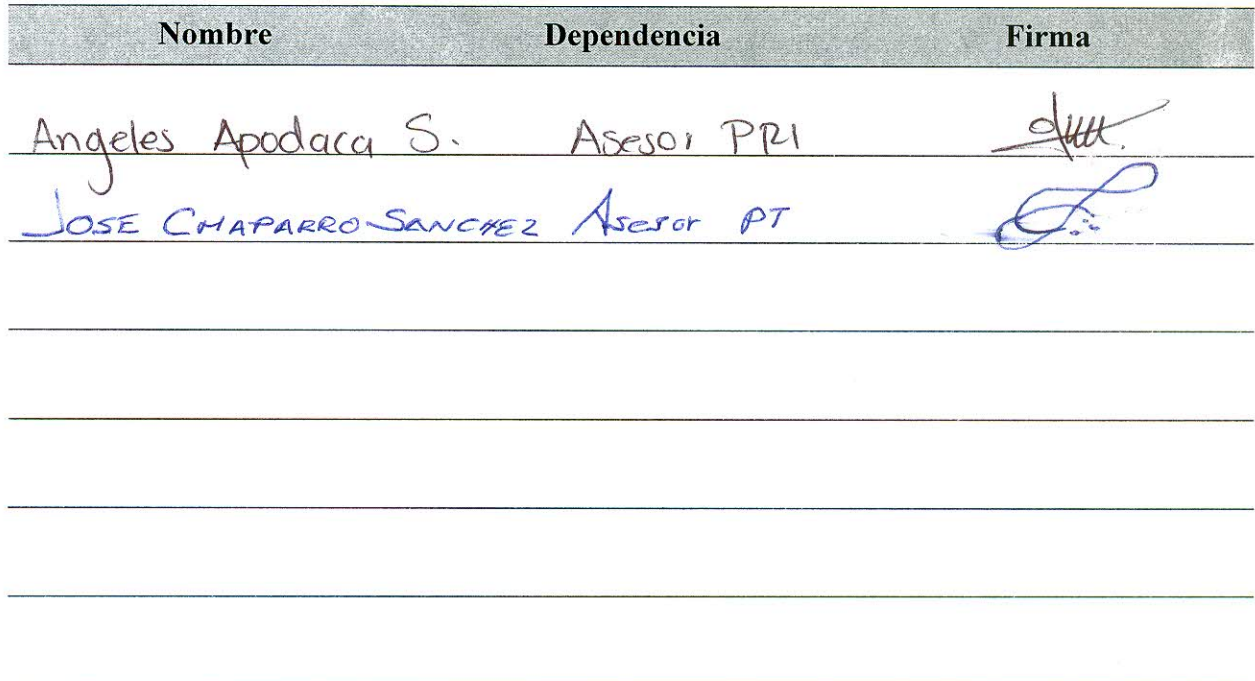 Nombre Dependencia Firma
Angeles Apodaca S. Asesor PRI
JOSE CHAPARRO SANCHEZ Asesor PT